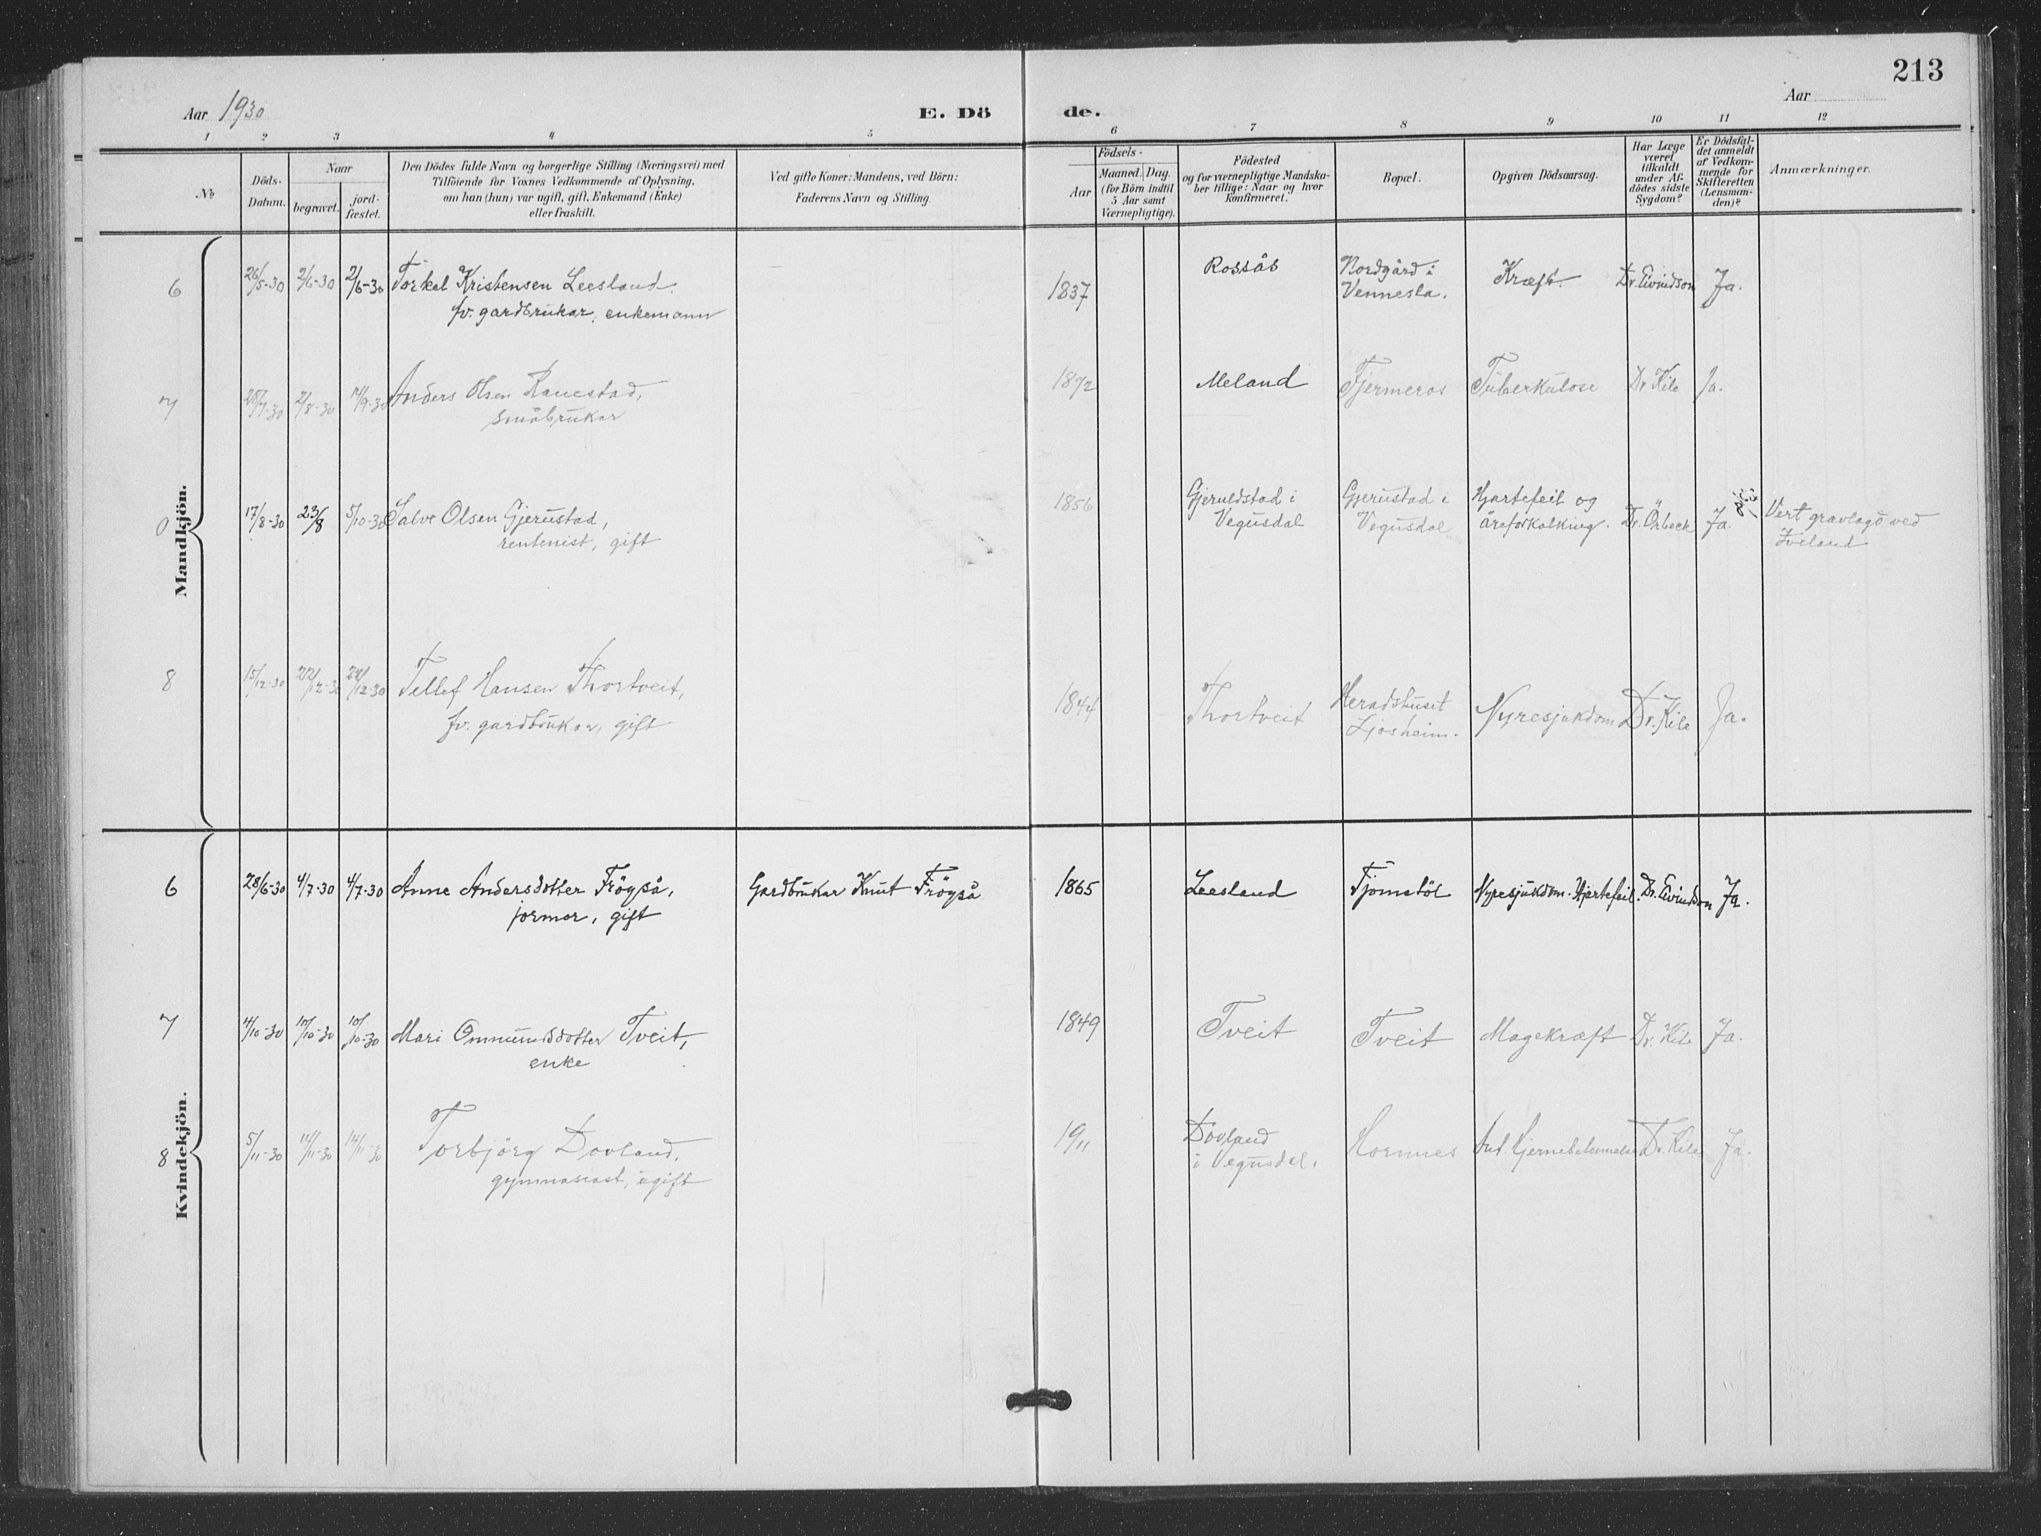 213
Aar 1930
E. Dö
de.
Aar
1 2 3 4 5 6 7 8 9 10 11 12
No
Döds-
Datum.
Naar
begravet.
jord-
fæstet.
Den Dödes fulde Navn og borgerlige Stilling (Næringsvei) med
Tilföiende for Voxnes Vedkommende af Oplysning,
om han (hun) var ugift, gift, Enkemand (Enke)
eller fraskilt.
Ved gifte Koner: Mandens, ved Börn:
Faderens Navn og Stilling.
Födsels-
Aar
Maaned. Dag.
(for Börn indtil
5 Aar samt
Værnepligtige).
Födested
og for værnepligtige Mandska-
ber tillige: Naar og hvor
konfirmeret.
Bopæl.
Opgiven Dödsaarsag.
Har Læge
været
tilkaldt
under Af-
dödes sidste
Sygdom?
Er Dödsfal-
det anmeldt
af Vedkom-
mende for
Skifteretten
(Lensman-
den)?
Anmærkninger.
Mandkjön.
6 26/5-30 2/6-30 2/6-30 Torkel Kristensen Leesland.
fv. gardbrukar, enkemann
1837 Rossås Nordgård i
Vennesla. Kræft. Dr. Eivindson Ja.
7 28/7-30 2/8-30 14/9-30 Anders Olsen Ranestad,
småbrukar
1872 Meland Fjermeros Tuberkulose Dr. Kile Ja.
0 17/8-30 23/8 5/10-30 Salve Olsen Gjerustad,
rentenist, gift
1856 Gjeruldstad i
Vegusdal Gjerustad i
Vegusdal Hjartefeil og
åreforkalking. Dr. Örbeck Ja. Vert gravlagd ved
Iveland
8 15/12-30 22/12-30 22/12-30 Tellef Hansen Thortveit,
fv. gardbrukar, gift
1844 Thortveit Heradshuset
Ljosheim. Nyresjukdom Dr. Kile Ja.
Kvindekjön.
6 28/6-30 4/7-30 4/7-30 Anne Andersdotter Frögså,
jormor, gift
Gardbrukar Knut Frögså 1865 Leesland Tjomstöl Nyresjukdom. Hjertefeil. Dr. Eivindson Ja.
7 4/10-30 10/10-30 10/10-30 Mari Ommundsdotter Tveit,
enke
1849 Tveit Tveit Magekræft Dr. Kile Ja.
8 5/11-30 14/11-30 14/11-30 Torbjörg Dovland,
gymnasiast, ugift
1911 Dovland
i Vegusdal. Hornnes Hjernebetennelse Dr. Kile Ja.